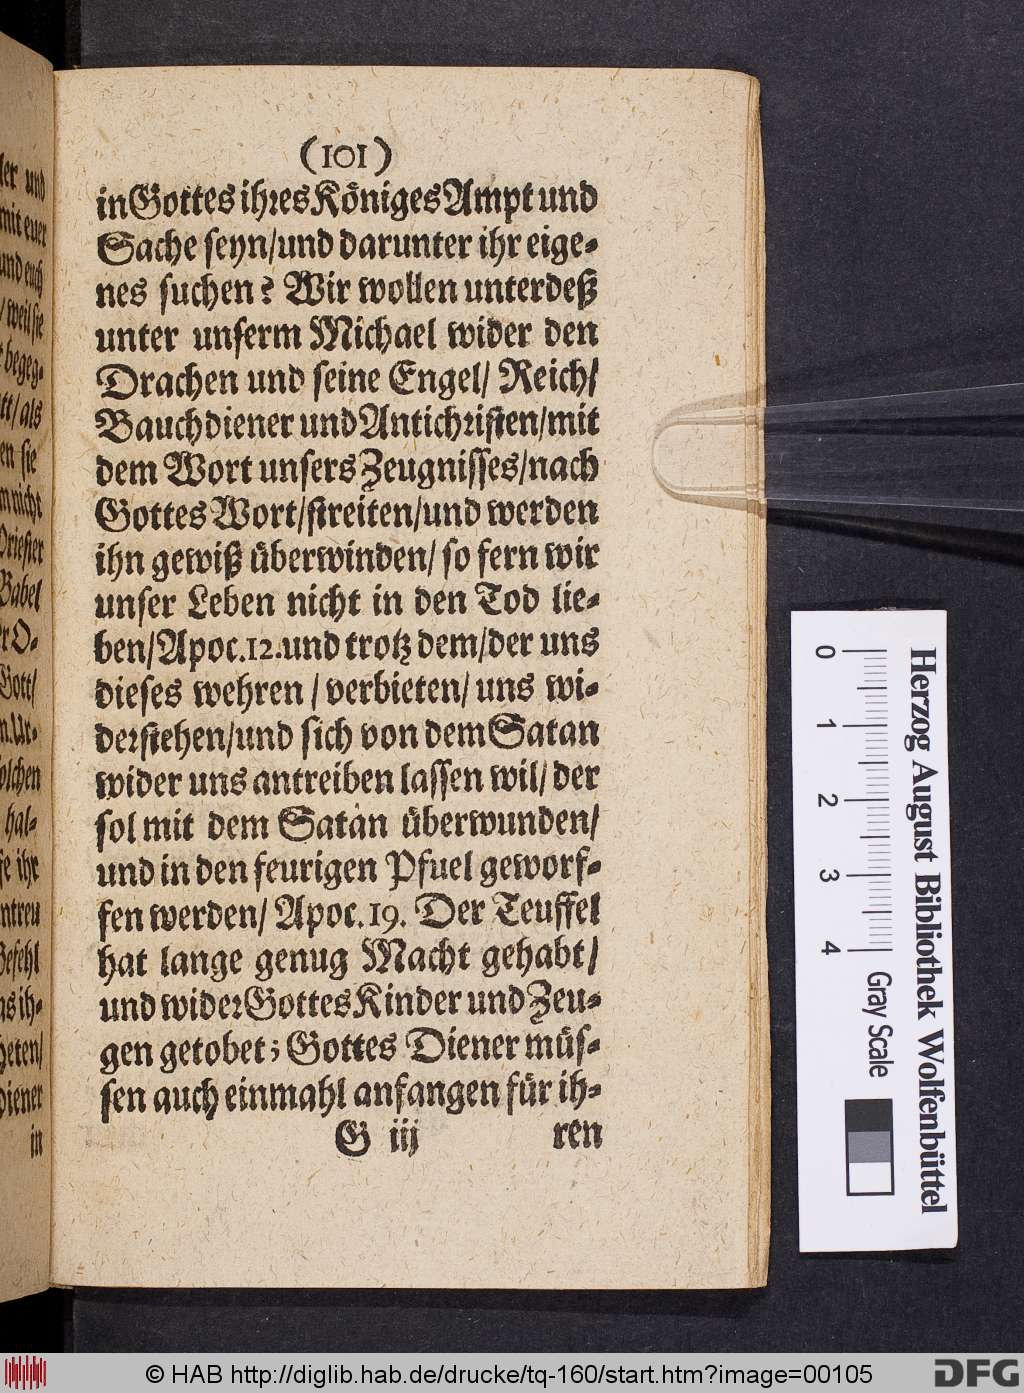 (101)
in Gottes ihres Königes Ampt und
Sache seyn/und darunter ihr eige-
nes suchen? Wir wollen unterdeß
unter unserm Michael wider den
Drachen und seine Engel/ Reich/
Bauchdiener und Antichristen/mit
dem Wort unsers Zeugnisses/nach
Gottes Wort/streiten/und werden
ihn gewiß überwinden/ so fern wir
unser Leben nicht in den Tod lie-
ben/Apoc.12.und trotz dem/der uns
dieses wehren / verbieten/ uns wi-
derstehen/und sich von dem Satan
wider uns antreiben lassen wil/ der
sol mit dem Satan überwunden/
und in den feurigen Pfuel geworf-
fen werden/ Apoc.19. Der Teuffel
hat lange genug Macht gehabt/
und wider Gottes Kinder und Zeu-
gen getobet; Gottes Diener müs-
sen auch einmahl anfangen für ih-
G iij ren
ler und
mit euer
und euch
/ weil sie
begeg-
tt/ als
en sie
m nicht
Priester
Babel
er O-
Gott/
n.Ur-
olchen
hal-
se ihr
ntreu
Befehl
as ih-
heten/
Diener
in
0 1 2 3 4
Gray Scale
Herzog August Bibliothek Wolfenbüttel
© HAB http://diglib.hab.de/drucke/tq-160/start.htm?image=00105
DFG